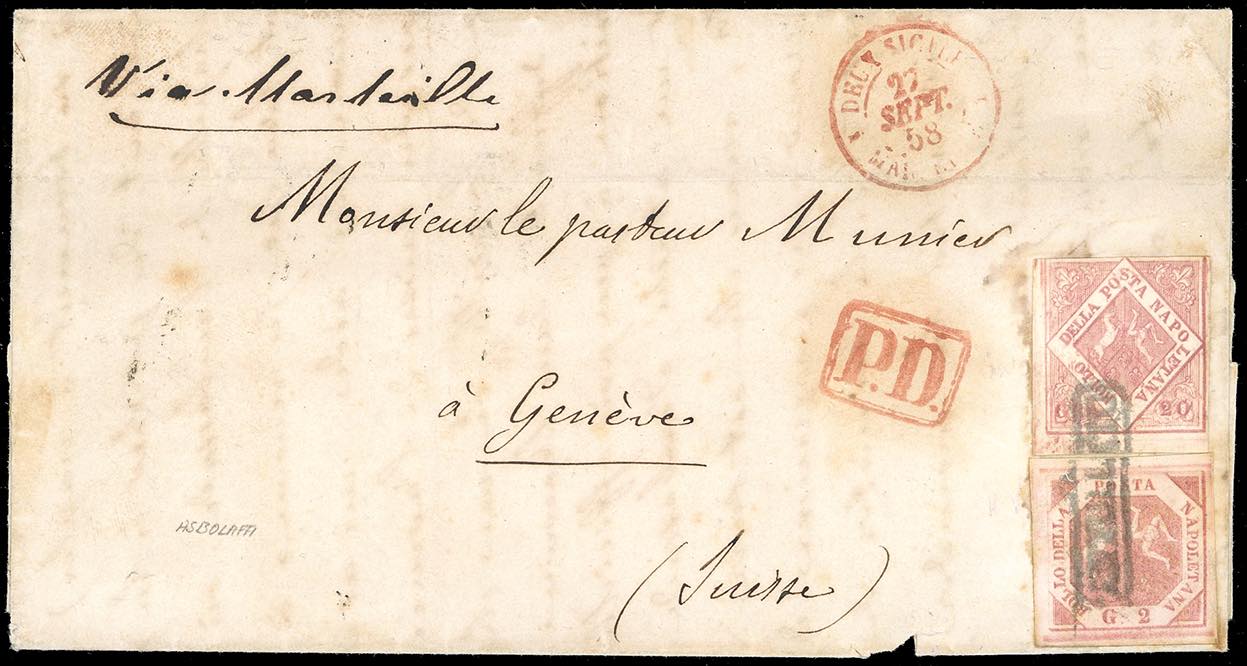 Via Marseille
DEUX SICILE
27
SEPT.
58
Monsieur le pasteur Munier
P.D.
à Genève
(Suisse)
DELLA POSTA NAPOLETANA
G 20
POSTA
BOLLO DELLA
NAPOLETANA
G 2
ASBOLAFFI